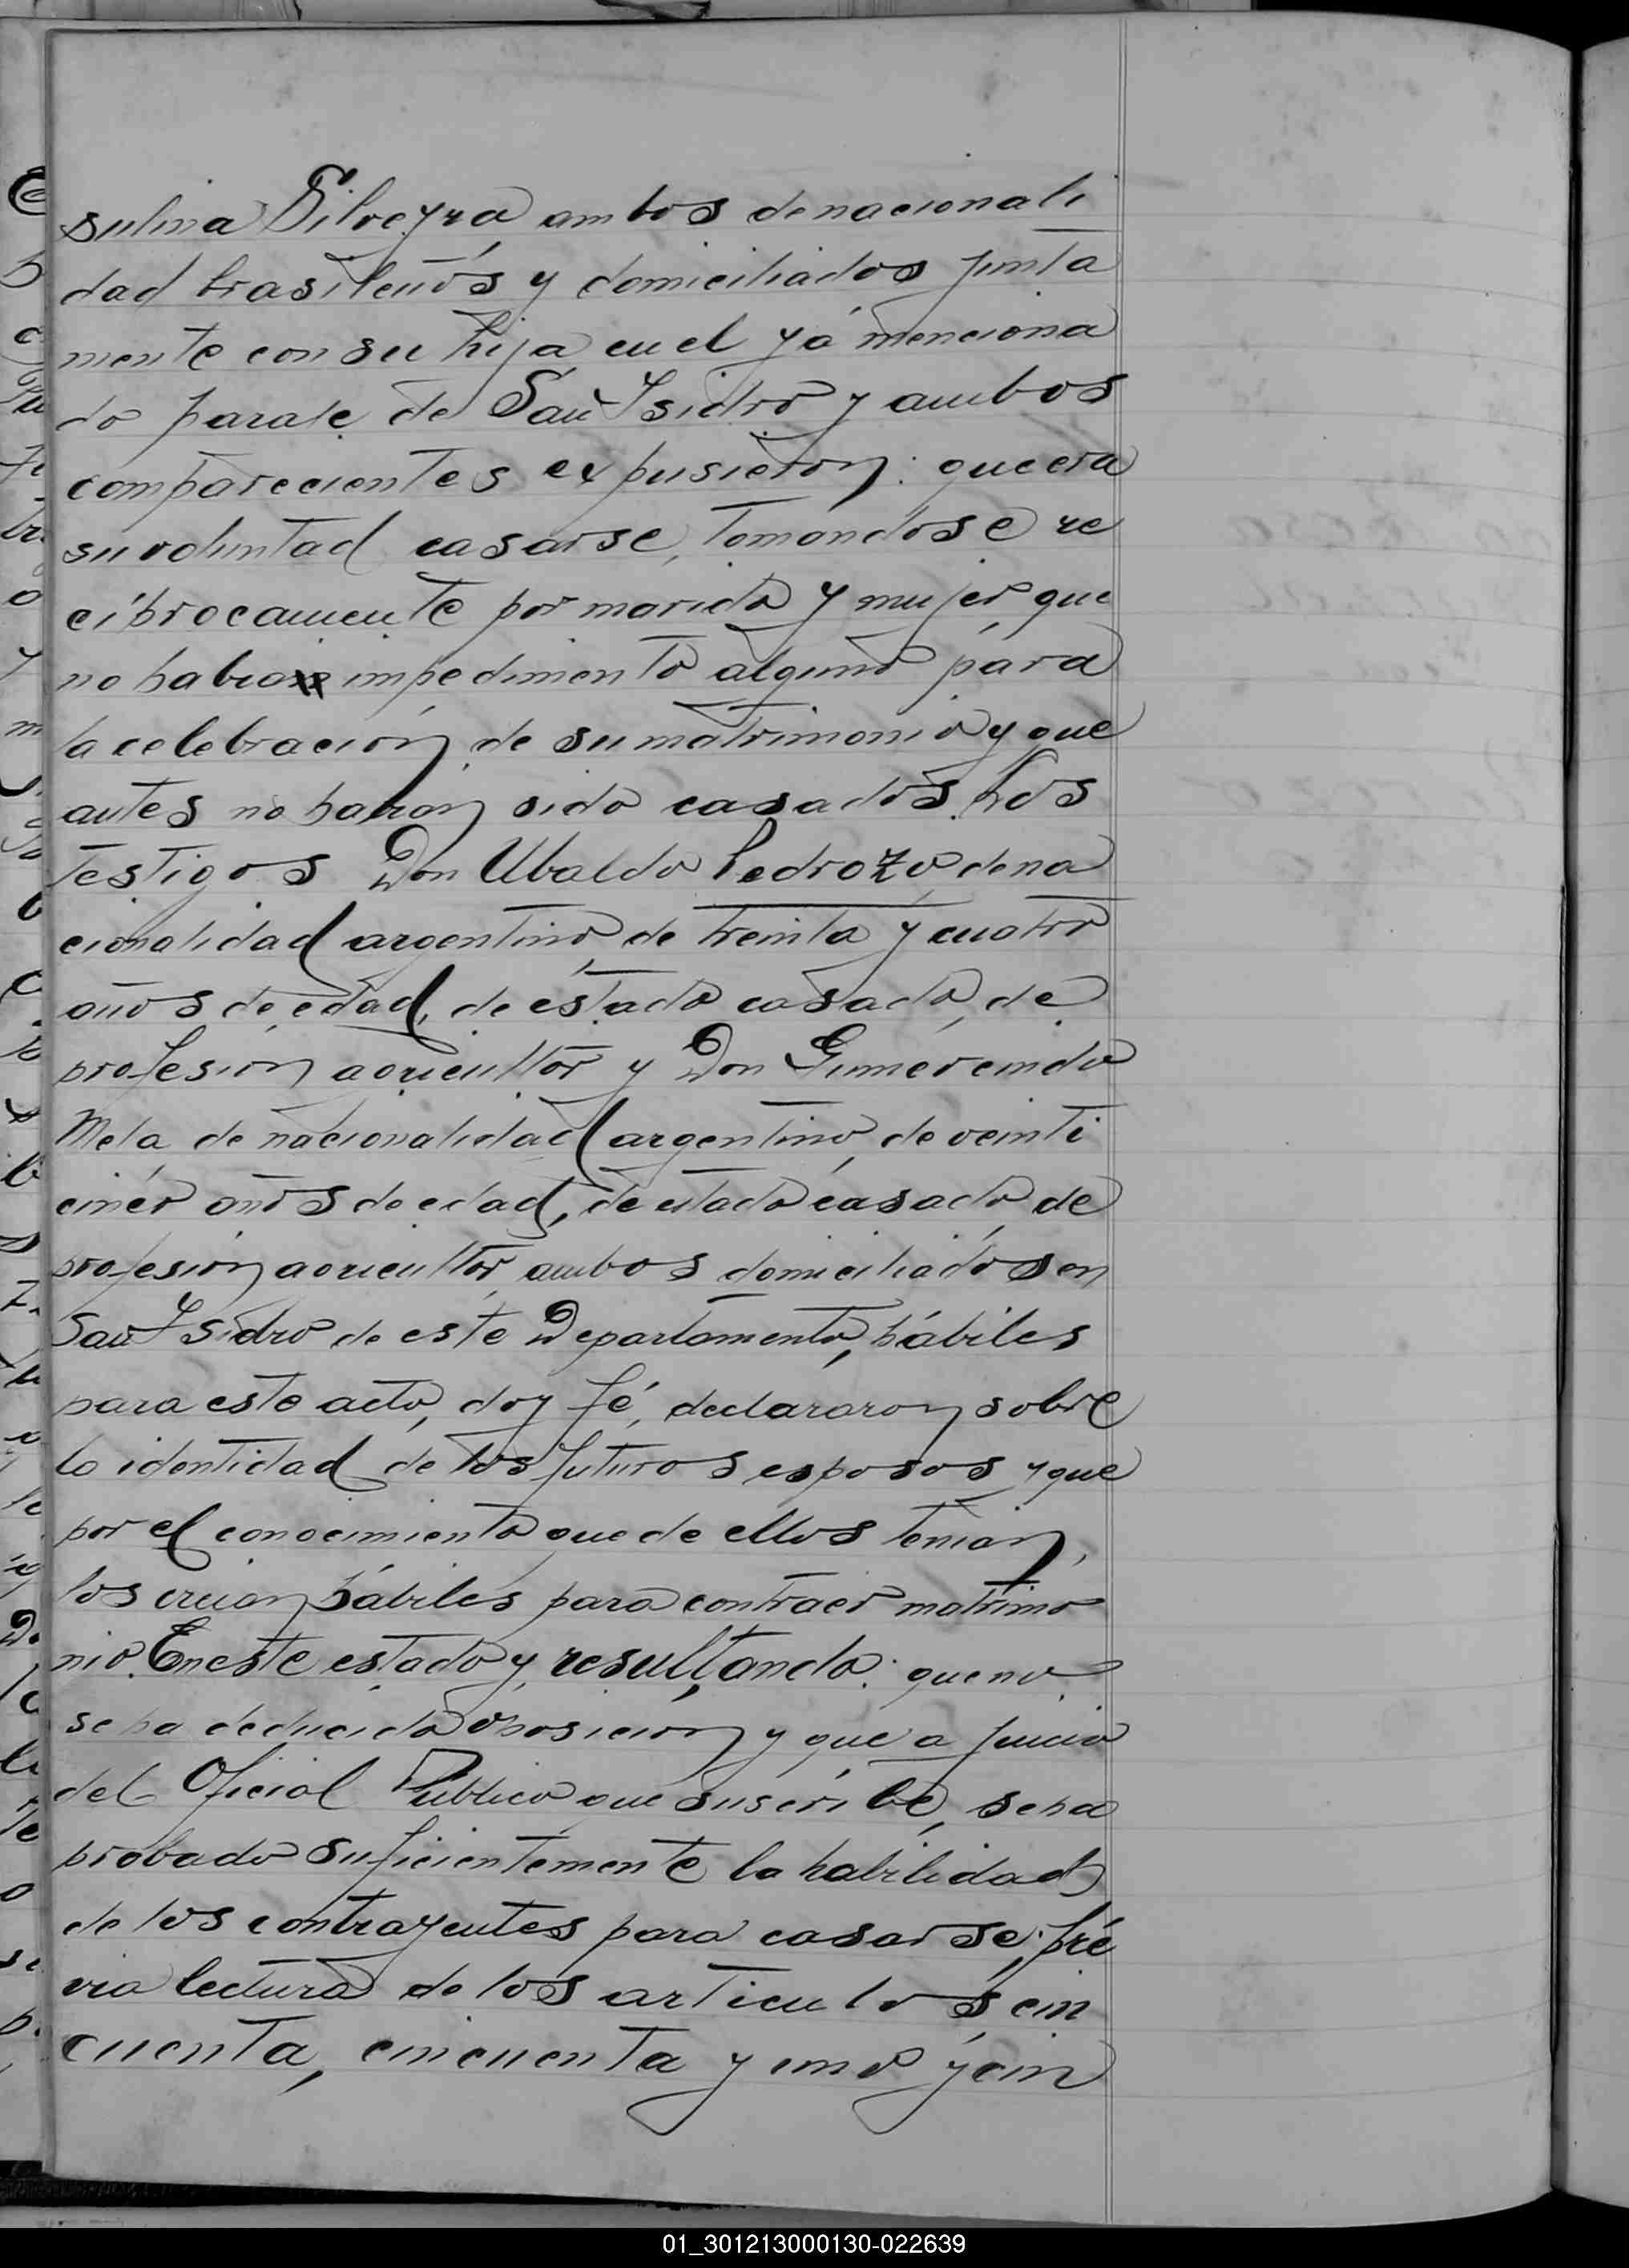 sulina Silveyra ambos de nacionali
dad brasileños y domiciliados junta
mente con su hija en el yá menciona
do paraje de San Isidro y ambos
comparecientes expusieron: que era
su voluntad casarse, tomandose re
ciprocamente por marido y mujer, que
no habia impedimento alguno para
la celebración de su matrimonio y que
antes no habian sido casados. Los
testigos Don Ubaldo Pedrozo, de na
cionalidad argentino, de treinta y cuatro
años de edad, de estado casado, de
profesion agricultor y Don Gumercindo
Mela de nacionalidad argentino, de veinti
cinco años de edad, de estado casado, de
profesión agricultor, ambos domiciliados en
San Isidro de este Departamento, hábiles
para este acto, doy fé, declararon sobre
la identidad de los futuros esposos y que
por el conocimiento que de ellos tenian,
los creian hábiles para contraer matrimo
nio. En este estado y resultando: que no
se ha deducido oposicion y que a juicio
del Oficial Público que suscribe, se ha
probado suficientemente la habilidad
de los contrayentes para casarse, pré
via lectura de los articulos cin
cuenta, cincuenta y uno y cin
01_301213000130-022639